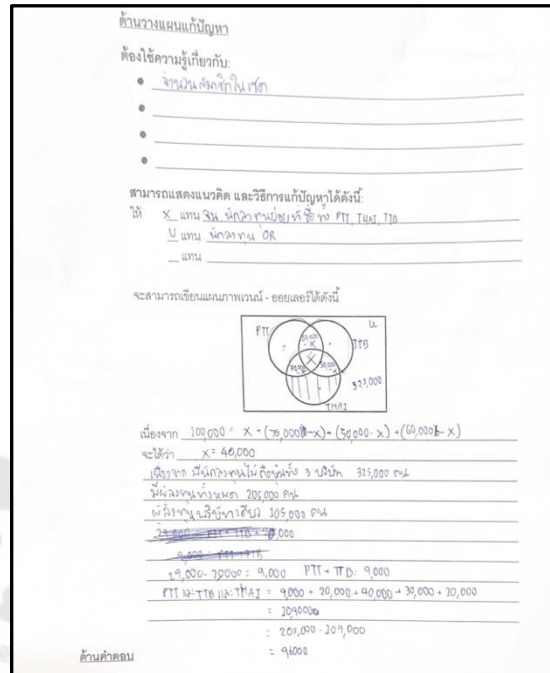 ด้านวางแผนแก้ปัญหา
ต้องใช้ความรู้เกี่ยวกับ:
• จำนวนสมาชิกในเซต
•
•
•
สามารถแสดงแนวคิด และวิธีการแก้ปัญหาได้ดังนี้:
ให้ X แทน นักลงทุน ที่ซื้อทั้ง PTT, THAI, TTB
U แทน นักลงทุน OR
แทน
จะสามารถเขียนแผนภาพเวนน์ - ออยเลอร์ได้ดังนี้
U
PTT
TTB
X
325,000
THAI
เนื่องจาก 100,000 = X + (70,000-X) + (50,000-X) + (60,000-X)
จะได้ว่า X = 40,000
เนื่องจาก มีนักลงทุนไม่ถือหุ้นทั้ง 3 บริษัท 325,000 คน
มีผู้ลงทุนทั้งหมด 205,000 คน
ผู้ลงทุนบริษัทเดียว 105,000 คน
29,000-20000 = 9,000 PTT + TTB = 9,000
PTT และ TTB และ THAI = 9,000 + 20,000 + 40,000 + 30,000 + 10,000
= 109000
= 205,000 - 109,000
= 96000
ด้านคำตอบ